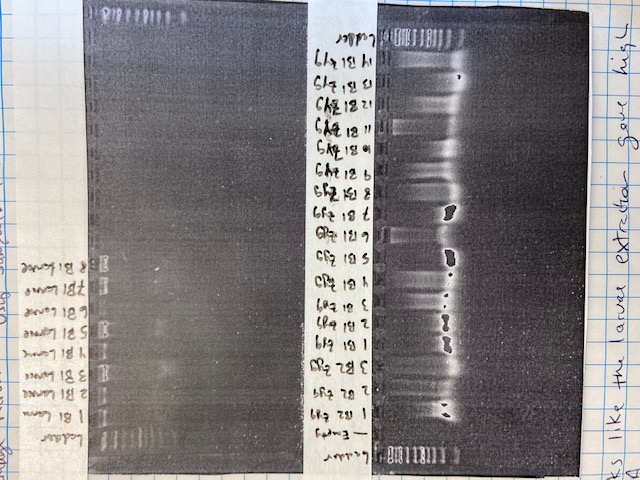 Using
Ladder
1 B1 Larvae
2 B1 Larvae
3 B1 Larvae
4 B1 Larvae
5 B1 Larvae
6 B1 Larvae
7 B1 Larvae
8 B1 Larvae
Ladder
— Empty
1 B2 Egg
2 B2 Egg
3 B2 Egg
1 B1 Egg
2 B1 Egg
3 B1 Egg
4 B1 Egg
5 B1 Egg
6 B1 Egg
7 B1 Egg
8 B1 Egg
9 B1 Egg
10 B1 Egg
11 B1 Egg
12 B1 Egg
13 B1 Egg
14 B1 Egg
Ladder
like the larvae extraction gave high